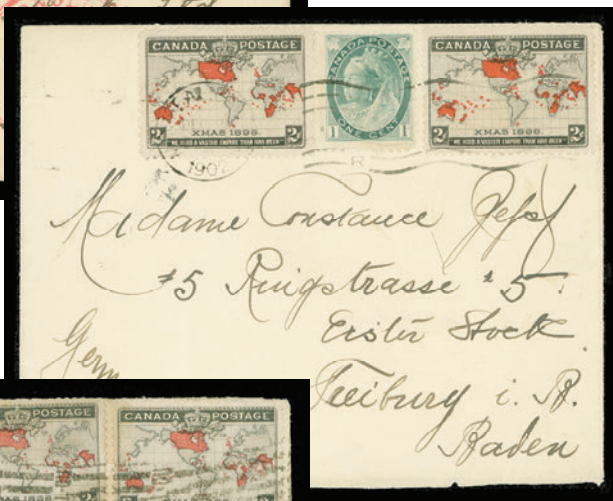 CANADA POSTAGE
XMAS 1898
2
2
"WE HOLD A VASTER EMPIRE THAN HAS BEEN"
CANADA POSTAGE
1
ONE CENT
1
CANADA POSTAGE
XMAS 1898
2
2
"WE HOLD A VASTER EMPIRE THAN HAS BEEN"
190
R
Madame Constance
#5 Ringstrasse #5
Erster Stock
Freiburg i. B.
Baden
Germ
POSTAGE
1898
2
CANADA POSTAGE
1898
2